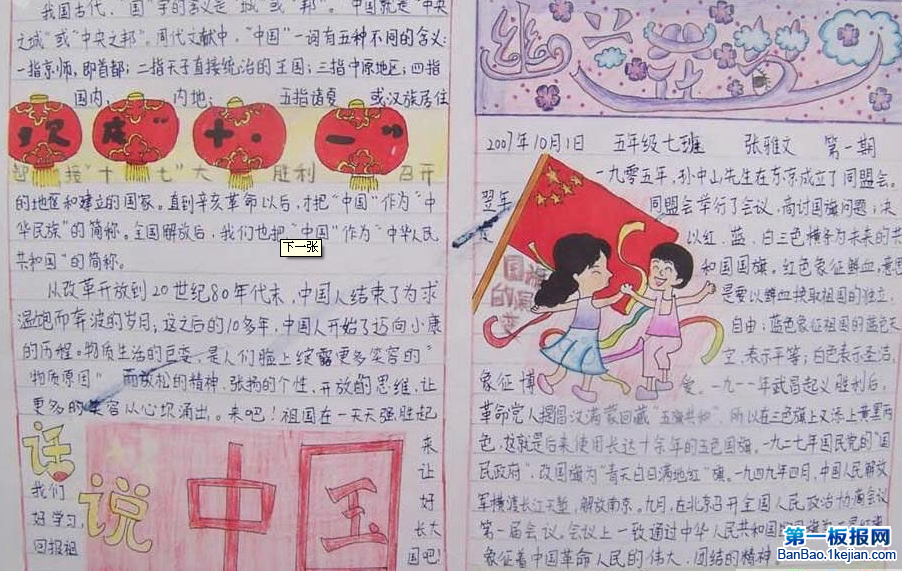 我国古代,"国"字的含义是"城"或"邦"。"中国就是"中央
之城"或"中央之邦"。周代文献中,"中国"一词有五种不同的含义:
一指京师,即首都;二指天子直接统治的王国;三指中原地区;四指
国内、内地;五指诸夏或汉族居住
"欢庆"十·一"
接"十七"大胜利召开
的地区和建立的国家。直到辛亥革命以后,才把"中国"作为"中
华民族"的简称。全国解放后,我们也把"中国"作为"中华人民
共和国"的简称。
下一张
从改革开放到20世纪80年代末,中国人结束了为求
温饱而奔波的岁月,这之后的10多年,中国人开始了迈向小康
的历程。物质生活的巨变,是人们脸上绽露更多笑容的"
物质原因" 而放松的精神,张扬的个性,开放的思维,让
更多的笑容从心坎涌出。来吧!祖国在一天天强胜起
来
让我们
好好学习,
长大
回报祖国吧!
话说中国
2007年10月1日 五年级七班 张雅文 第一期
一九零五年,孙中山先生在东京成立了同盟会。
翌年 同盟会举行了会议,商讨国旗问题;决
定以红、蓝、白三色横条为未来的共
和国国旗。红色象征鲜血,意思
是要以鲜血换取祖国的独立,
自由;蓝色象征祖国的蓝色天
空,表示平等;白色表示圣洁,
象征博爱。一九一一年武昌起义胜利后,
革命党人提倡汉满蒙回藏"五族共和",所以在三色旗上又添上黄黑两
色,这就是后来使用长达十余年的五色国旗。一九二七年国民党的"国
民政府",改国旗为"青天白日满地红"旗。一九四九年四月,中国人民解放
军横渡长江天堑,解放南京。九月,在北京召开全国人民政治协商会议
第一届会议。会议上一致通过中华人民共和国
象征着中国革命人民的伟大、团结的精神。
国旗的
第一板报网
BanBao.1kejian.com